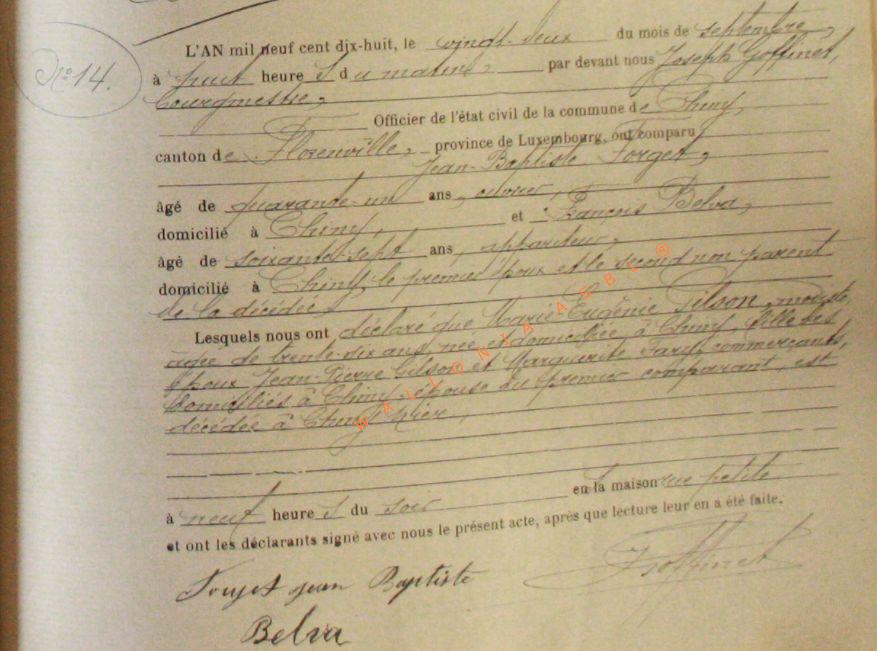 N° 14.
L'AN mil neuf cent dix-huit, le vingt-deux du mois de septembre,
à huit heure s du matin, par devant nous Joseph Goffinet,
bourgmestre,
Officier de l'état civil de la commune de Chiny,
canton de Florenville, province de Luxembourg, ont comparu
Jean-Baptiste Forget,
âgé de quarante-un ans, ouvrier,
domicilié à Chiny, et François Belva,
âgé de soixante-sept ans, appariteur,
domicilié à Chiny, le premier époux et le second non parent
de la décédée,
Lesquels nous ont déclaré que Marie-Eugénie Gilson, modiste,
âgée de trente-six ans, née et domiciliée à Chiny, fille des
époux Jean-Pierre Gilson et Marguerite commerçants,
domiciliés à Chiny, épouse du premier comparant, est
décédée à Chiny hier,
à neuf heure s du soir en la maison rue petite
et ont les déclarants signé avec nous le présent acte, après que lecture leur en a été faite.
Forget jean Baptiste
JGoffinet
Belva